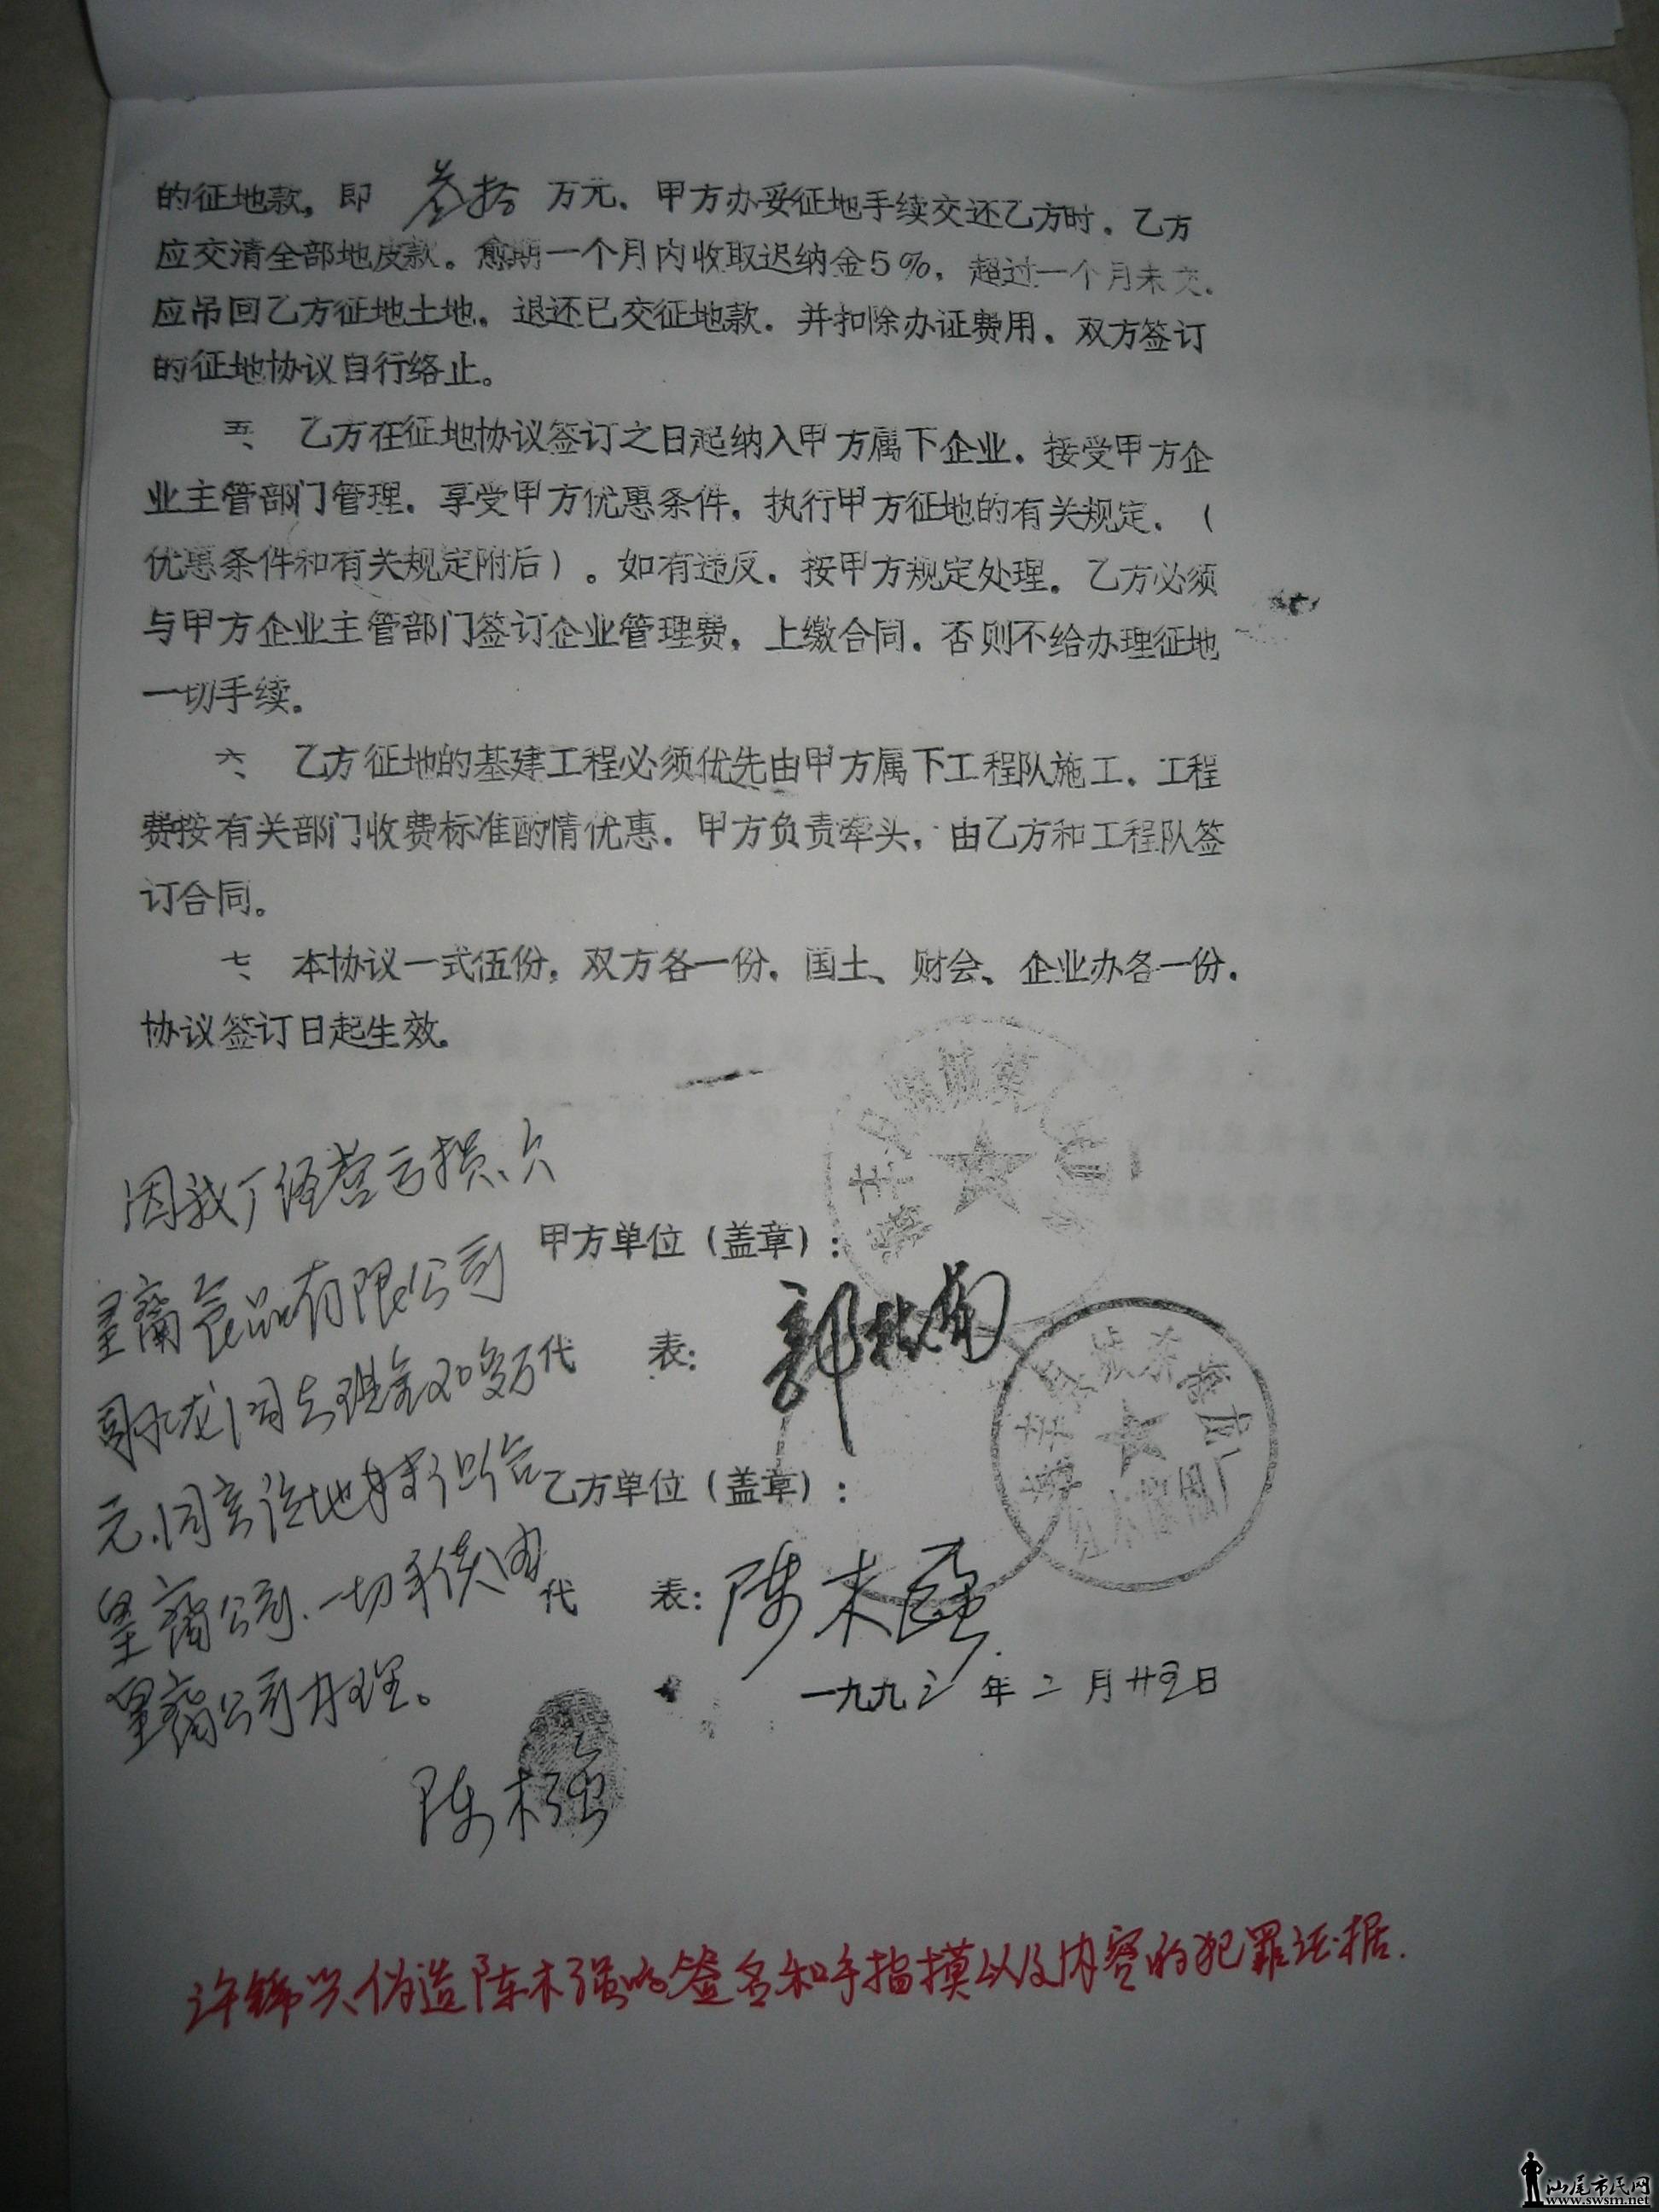 的征地款，即 叁拾 万元．甲方办妥征地手续交还乙方时．乙方
应交清全部地皮款。愈期一个月内收取迟纳金5%，超过一个月未交．
应吊回乙方征地土地．退还已交征地款．并扣除办证费用．双方签订
的征地协议自行络止。
五、 乙方在征地协议签订之日起纳入甲方属下企业．接受甲方企
业主管部门管理．享受甲方优惠条件．执行甲方征地的有关规定．（
优惠条件和有关规定附后）。如有违反．按甲方规定处理．乙方必须
与甲方企业主管部门签订企业管理费，上缴合同．否则不给办理征地
一切手续。
六、 乙方征地的基建工程必须优先由甲方属下工程队施工．工程
费按有关部门收费标准酌情优惠．甲方负责牵头，由乙方和工程队签
订合同。
七、 本协议一式伍份，双方各一份．国土、财会、企业办各一份．
协议签订日起生效。
因我厂经营亏损、欠
食品有限公司
元．同意该地
公司．一切手续由
公司办理。
甲方单位（盖章）：
代 表：
乙方单位（盖章）：
代 表：陈木强
一九九三年二月廿五日
陈木强
许锦兴伪造陈木强的签名和手指摸以及内容的犯罪证据．
汕尾市民网
www.swsm.net